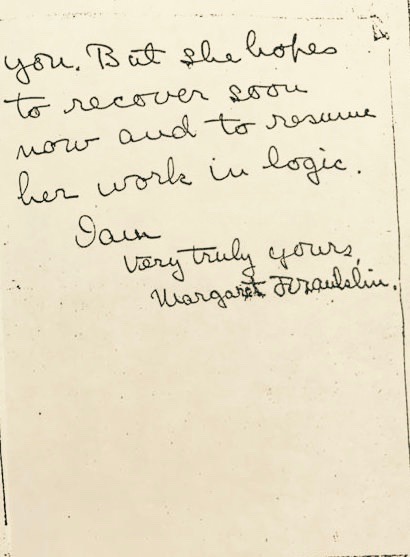 you. But she hopes
to recover soon
now and to resume
her work in logic.
I am
Very truly yours,
Margaret Franklin.